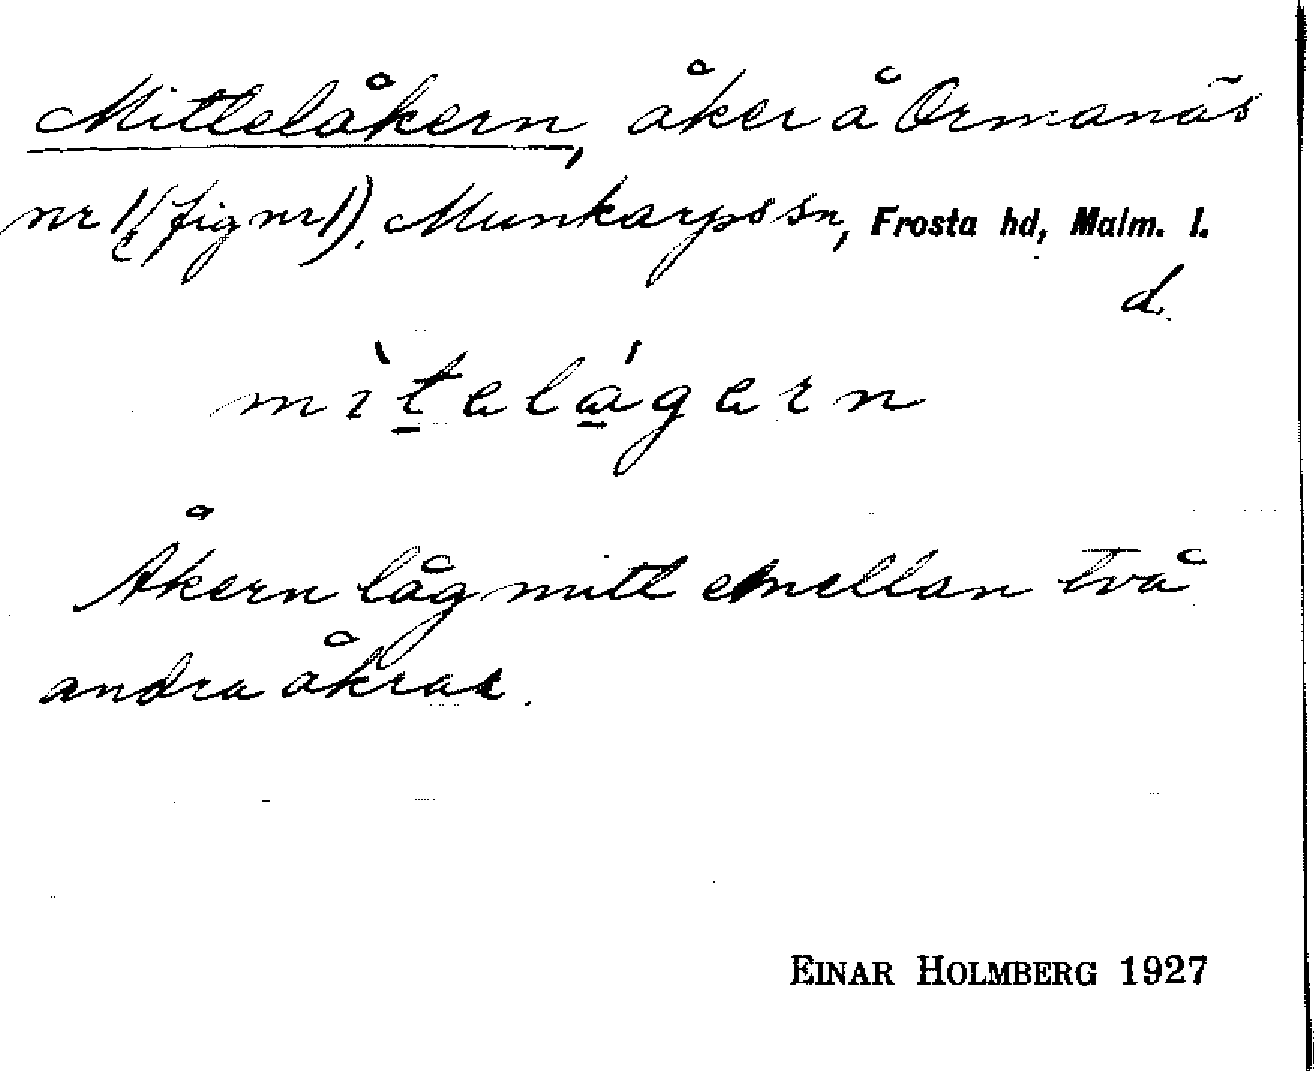 Mittelåkern, åker å Ormanäs
nr 1 (fig nr 1). Munkarps sn, Frosta hd, Malm. l.
d.
mìtelágern
Åkern låg mitt emellan två
andra åkrar.
EINAR HOLMBERG 1927